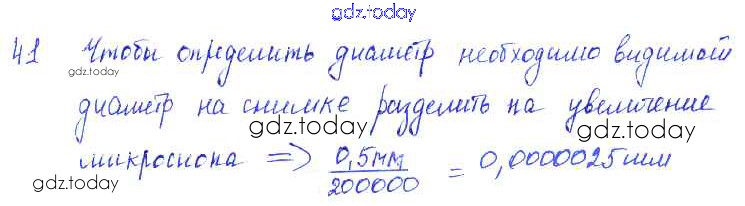 gdz.today
41 Чтобы определить диаметр необходимо видимый
gdz.today
диаметр на снимке разделить на увеличение
gdz.today gdz.today
микроскопа => 0,5мм / 200000 = 0,0000025мм
gdz.today